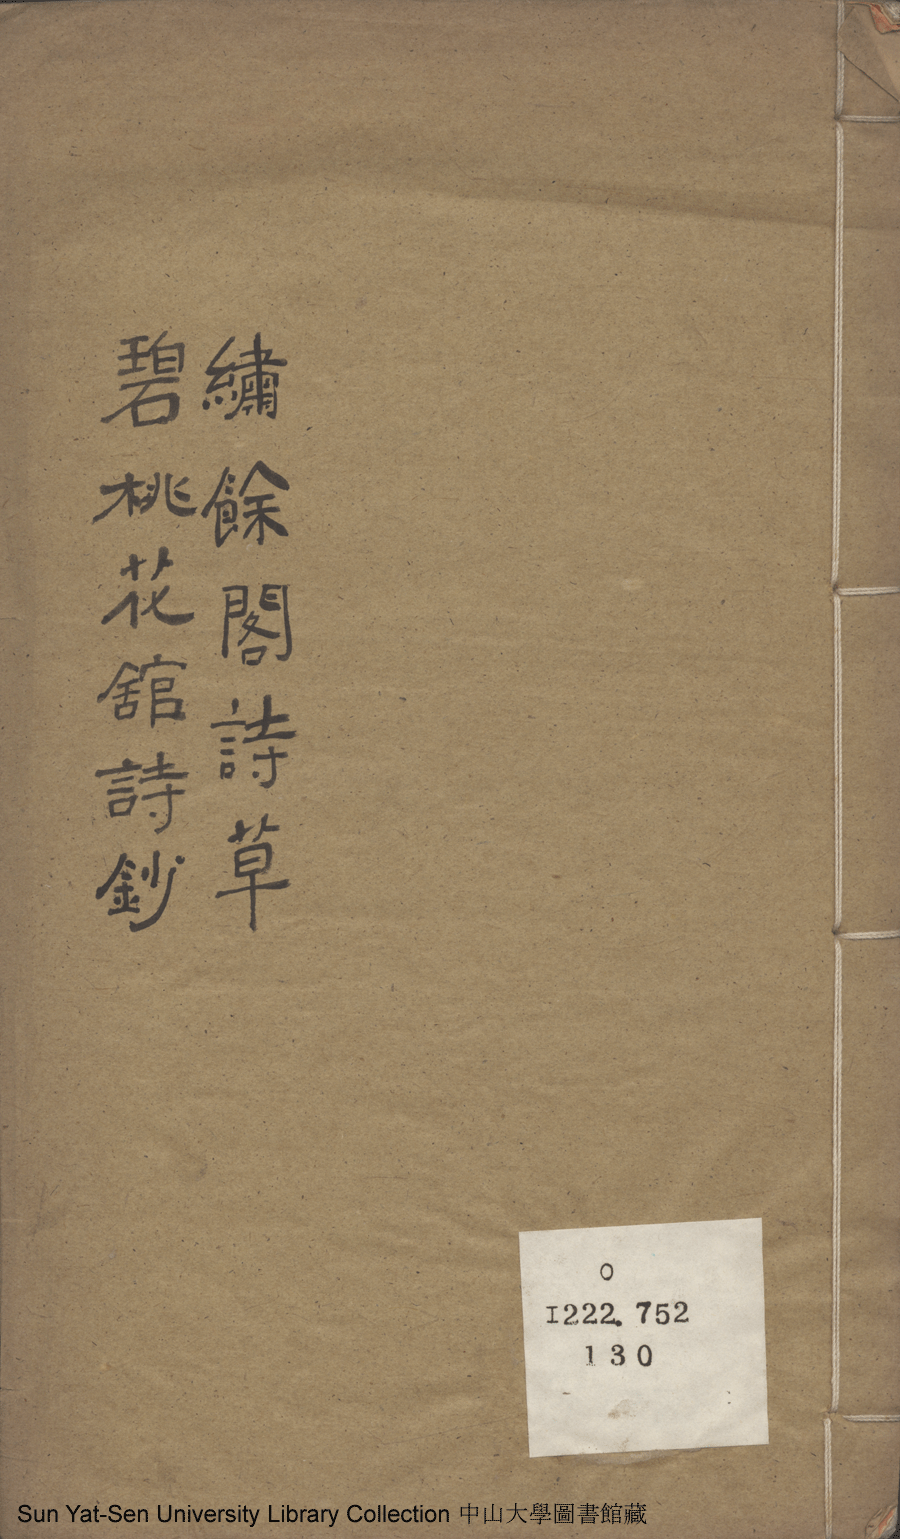 繡餘閣詩草
碧桃花舘詩鈔
O
I222.752
130
Sun Yat-Sen University Library Collection 中山大學圖書館藏